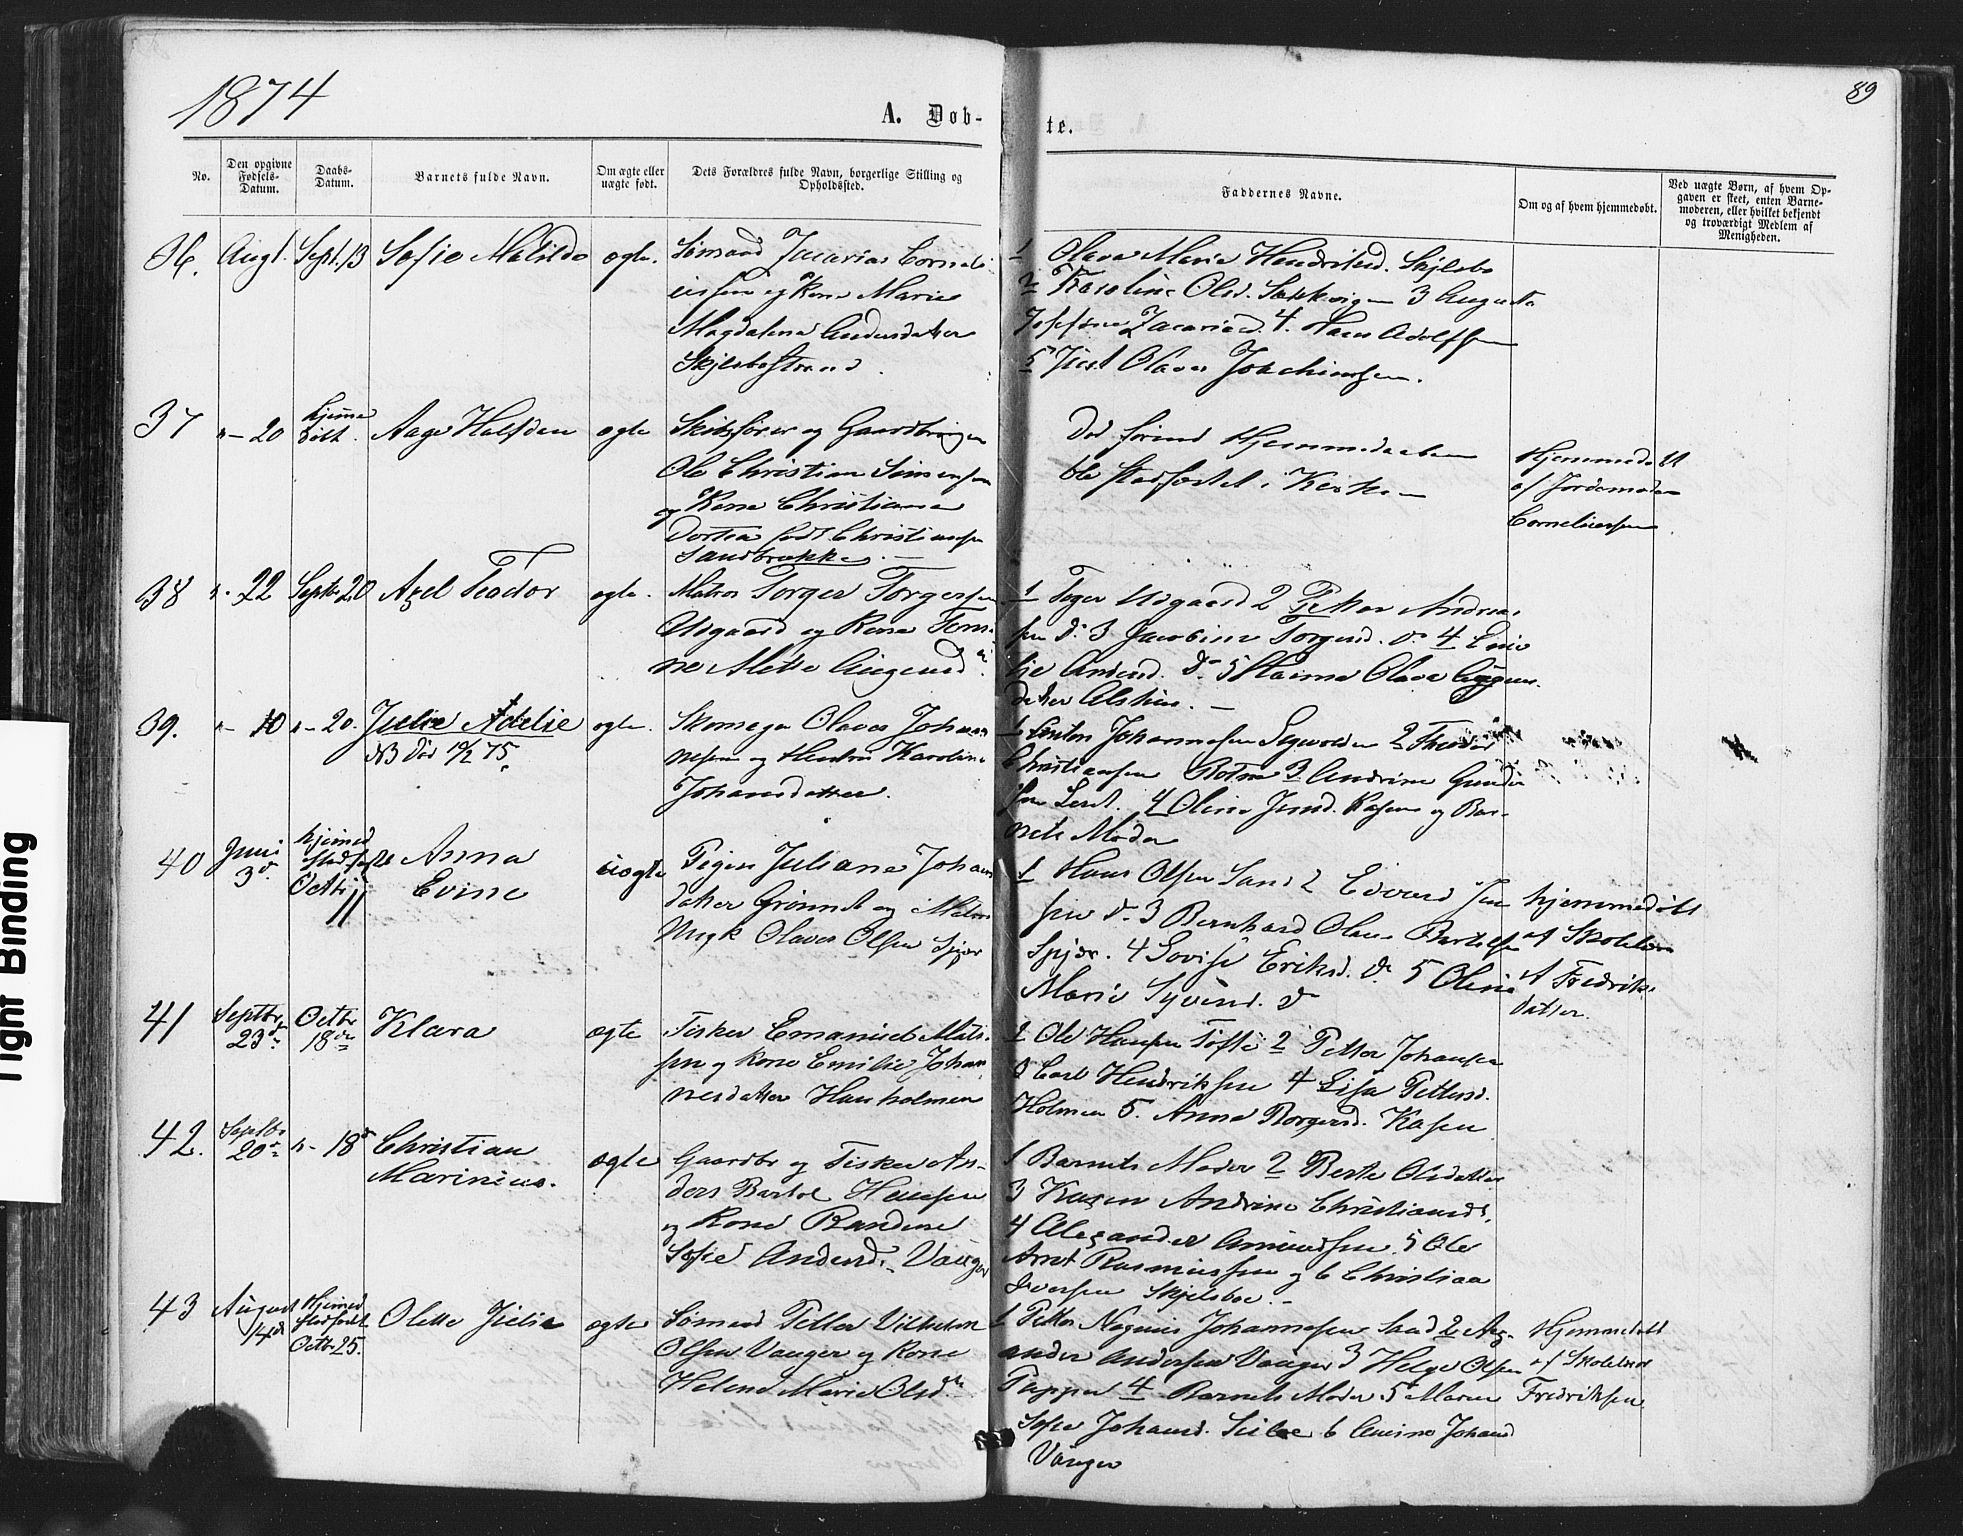 1874
89
A. Døb-
te.
No.
Den opgivne Fødsels-Datum.
Daabs-Datum.
Barnets fulde Navn.
Om ægte eller uægte født.
Dets Forældres fulde Navn, borgerlige Stilling og Opholdssted.
Faddernes Navne.
Om og af hvem hjemmedøbt.
Ved uægte Børn, af hvem Opgaven er skeet, enten Barnemoderen, eller hvilket bekjendt og troværdigt Medlem af Menigheden.
36. Augt. Septr. 13 Sofie Matilde ægte.
Sømand Zacarias Corneli
ussen og Kone Marie
Magdalena Andersdatter
Skjelsbostrand.
1 Olava Marie Hendriksd. Skjelsbo
2 Karoline Olsd. 3 Augusta
Josefine Zacariasd. 4. Hans Adolfsen
5 Just Olaves Joachimsen.
37 "- 20 hjemme døbt. Aage Halfdan ægte
Skibsfører og Gaardbruger
Ole Christian Simensen
og Kone Christiane
Dortea født Christiansen
Sandbrække. —
Død førend Hjemmedaaben
ble stadfæstet i Kirken —
Hjemmedøbt
af Jordemoder
Corneliussen
38 "- 22 Septbr 20 Axel Teodor ægte.
Matros Torger Torgersen
Udgaard og Kone Tomi-
ne Mette
1 Torger Udgaard 2 Petter Andrea-
sen do. 3 Jacobine Torgersd. do 4
Andersd. do. 5 Olava
datter —
39. "- 10 "- 20. Julie Adelie ægte.
NB Død 19/2 75.
Skomager Olaves Johan
nesen og Hustru Karoline
Johansdatter.
1 Anton Johannesen 2 Theodor
Christiansen 3 Andrine Gunder
sen 4 Oline Jensd. Kasen og Bar-
nets Moder
40 Juni 3d. hjemmed stadfæstet Octbr 11 Anna
Evine uægte
Pigen Juliane Johans
datter Grønnet og
Olaves Olsen Spjær
1 Hans Olsen Sand 2 Edvard
sen do. 3 Bernhard Olaus Bartelsen
Spjær. 4 Lovise Eriksd. do 5 Oline
Marie do
hjemmedøbt
af Skolelærer
A Fredriks-
datter.
41 Septbr 23de Octbr 18de Klara ægte
Fisker Emanuel Mats-
sen og Kone Emilie Johan
nesdatter Hansholmen
1 Ole Hansen Tofte 2 Petter Johansen
3 Carl Hendriksen 4 Lisa Pettersd.
Holmen 5. Anna Borgersd. Kasen
42. Septbr 20de "- 18d Christian
Marinius. ægte
Gaardbr og Fisker An-
ders Bartol Hansen
og Kone Randine
Sofie Andersd. Vauger
1 Barnets Moder 2 Berte Olsdatter
3 Karen Andrine Christiansd.
4 Alexander Amundsen 5 Ole
Arnt Rasmussen og 6 Christian
Iversen Skjelsboe. —
43 August 14d Hjemmed stadfæst Octbr 25. Olette Julie ægte
Sømand Petter Vilhelm
Olsen Vauger og Kone
Helene Marie Olsdtr
1 Petter Magnus Johannesen Sand 2 Alex-
ander Andersen Vauger 3 Helge Olsen
4 Barnets Moder 5 Maren
Sofie Johansd. 6 Johansd
Vauger
Hjemmedøbt
af Skolelærer
Fredriksen
Tight Binding